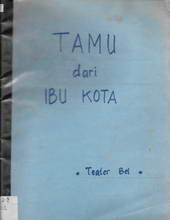 TAMU
dari
IBU KOTA
• Teater Bel •